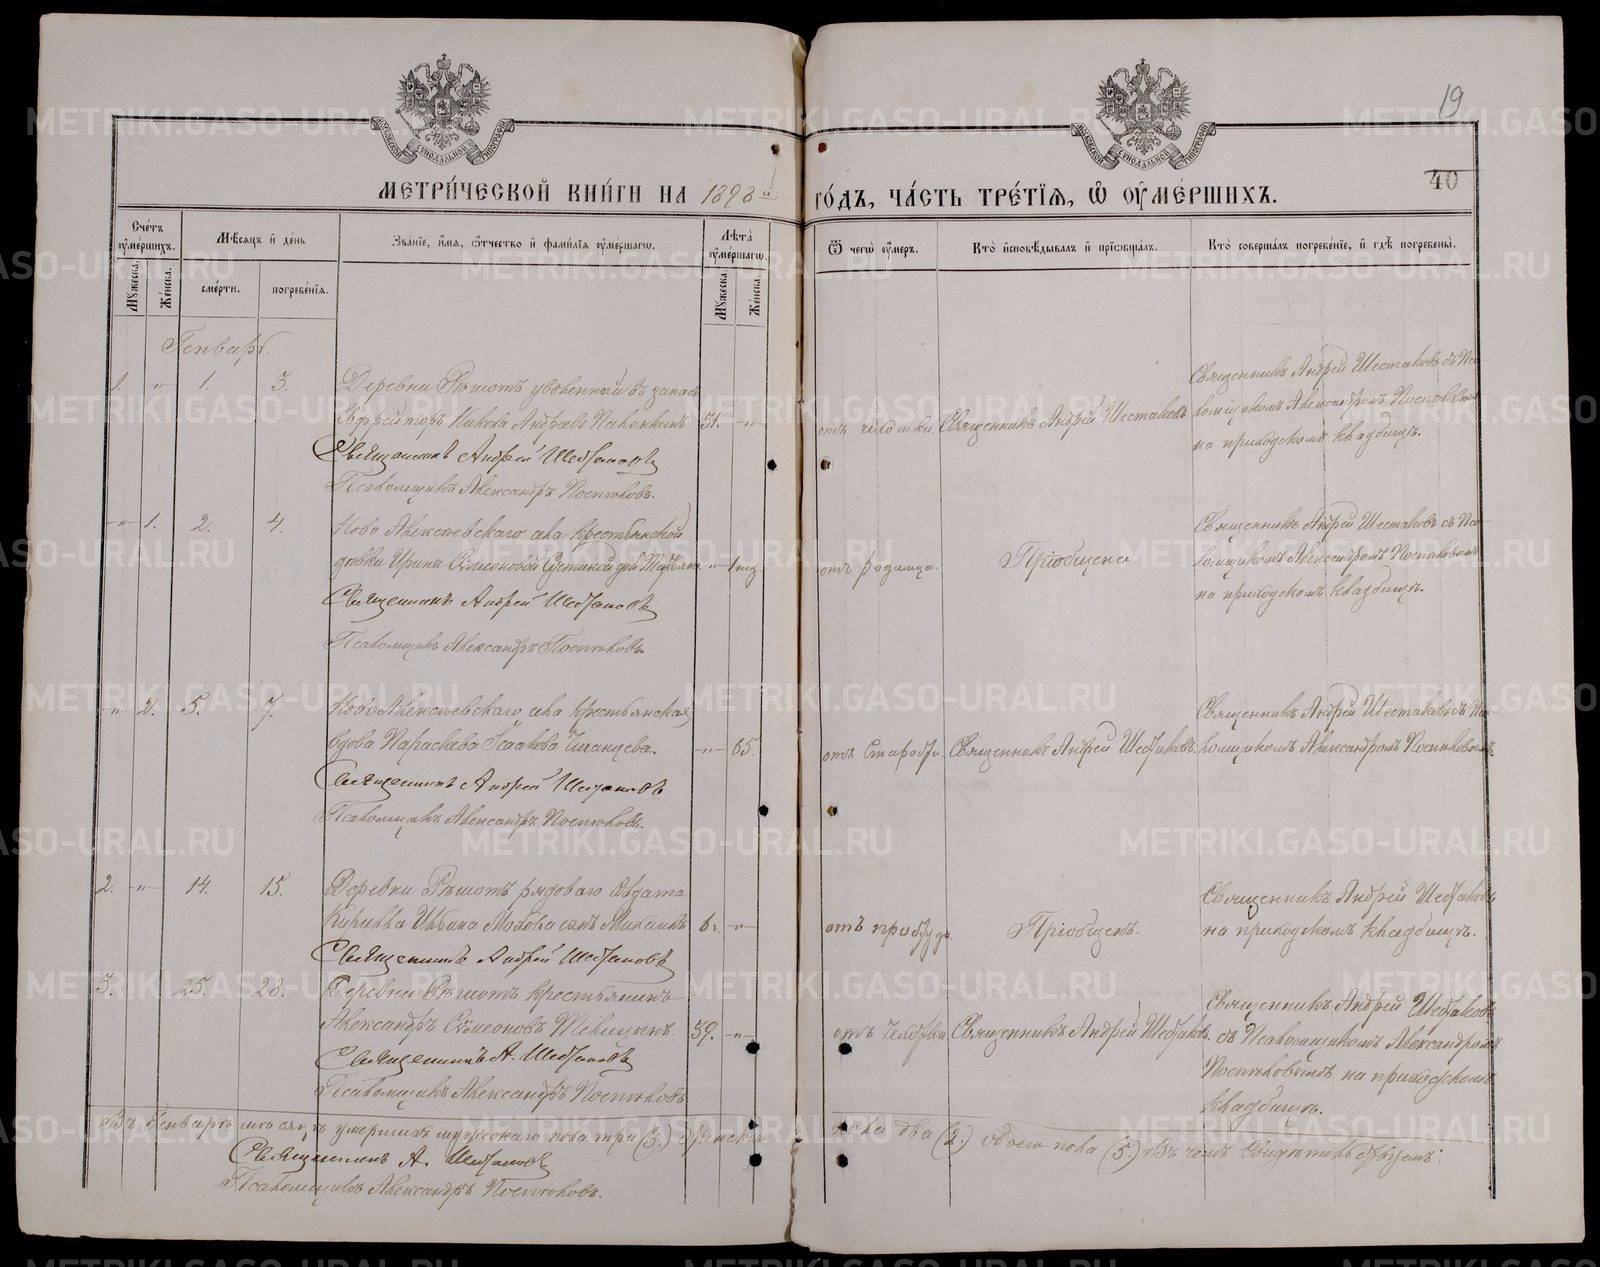 19
40
МЕТРИЧЕСКОЙ КНИГИ НА 1898 й
ГОДЪ, ЧАСТЬ ТРЕТІЯ, Ѡ ОУМЕРШИХЪ.
Счетъ оумершихъ.
Мѣсяцъ и день
Званіе, имя, ѿчество и фамилія оумершагѡ.
Лѣта оумершагѡ.
Ѿ чегѡ оумеръ.
Кто исповѣдывалъ и пріобщалъ.
Кто совершалъ погребеніе, и гдѣ погребены.
Мужеска.
Женска.
смерти.
погребенія.
Мужеска.
Женска.
Генварь.
1. „ 1. 3. Деревни Рѣшотъ уволенный въ запасъ
Ефрейторъ Андреевъ 51. „ отъ чахотки. Священникъ Андрей Шестаковъ
Священникъ Андрей Шестаковъ съ Пса-
ломщикомъ Александромъ Постниковымъ
на приходскомъ кладбищѣ.
Священникъ Андрей Шестаковъ
Псаломщикъ Александръ Постниковъ.
„ 1. 2. 4. Ново Алексѣевскаго села крестьянской
дѣвки Ирины Симеоновой дочь Татьяна „ 1 отъ родимца. Пріобщена.
Священникъ Андрей Шестаковъ съ Пса-
ломщикомъ Александромъ Постниковымъ
на приходскомъ кладбищѣ.
Священникъ Андрей Шестаковъ
Псаломщикъ Александръ Постниковъ.
„ 2. 5. 7. Ново Алексѣевскаго села крестьянская
вдова Параскева Исаакова „ 65. отъ старости. Священникъ Андрей Шестаковъ
Священникъ Андрей Шестаковъ съ Пса-
ломщикомъ Александромъ Постниковымъ.
Священникъ Андрей Шестаковъ
Псаломщикъ Александръ Постниковъ.
2. „ 14. 15. Деревни Рѣшотъ рядоваго солдата
Кирилла Мохова сынъ 6. „ отъ простуды. Пріобщенъ.
Священникъ Андрей Шестаковъ
на приходскомъ кладбищѣ.
Священникъ Андрей Шестаковъ
3. 25. 28. Деревни Рѣшотъ крестьянинъ
Александръ Симеоновъ Тѣлицынъ. 59. „ отъ чахотки. Священникъ Андрей Шестаковъ.
Священникъ Андрей Шестаковъ
съ Псаломщикомъ Александромъ
Постниковымъ на приходскомъ
кладбищѣ.
Священникъ А. Шестаковъ
Псаломщикъ Александръ Постниковъ.
Въ Генварѣ мѣсяцѣ умершихъ мужескаго пола три (3.) женскаго
пола два (2.) обоего пола (5.) Въ чемъ свидѣтельствуемъ:
Священникъ А. Шестаковъ
Псаломщикъ Александръ Постниковъ.
METRIKI.GASO-URAL.RU